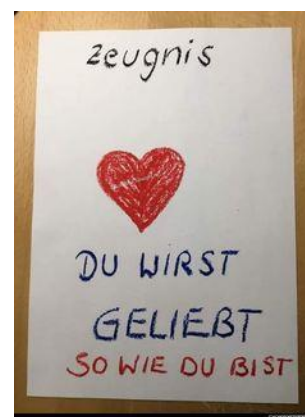 Zeugnis
DU WIRST
GELIEBT
SO WIE DU BIST